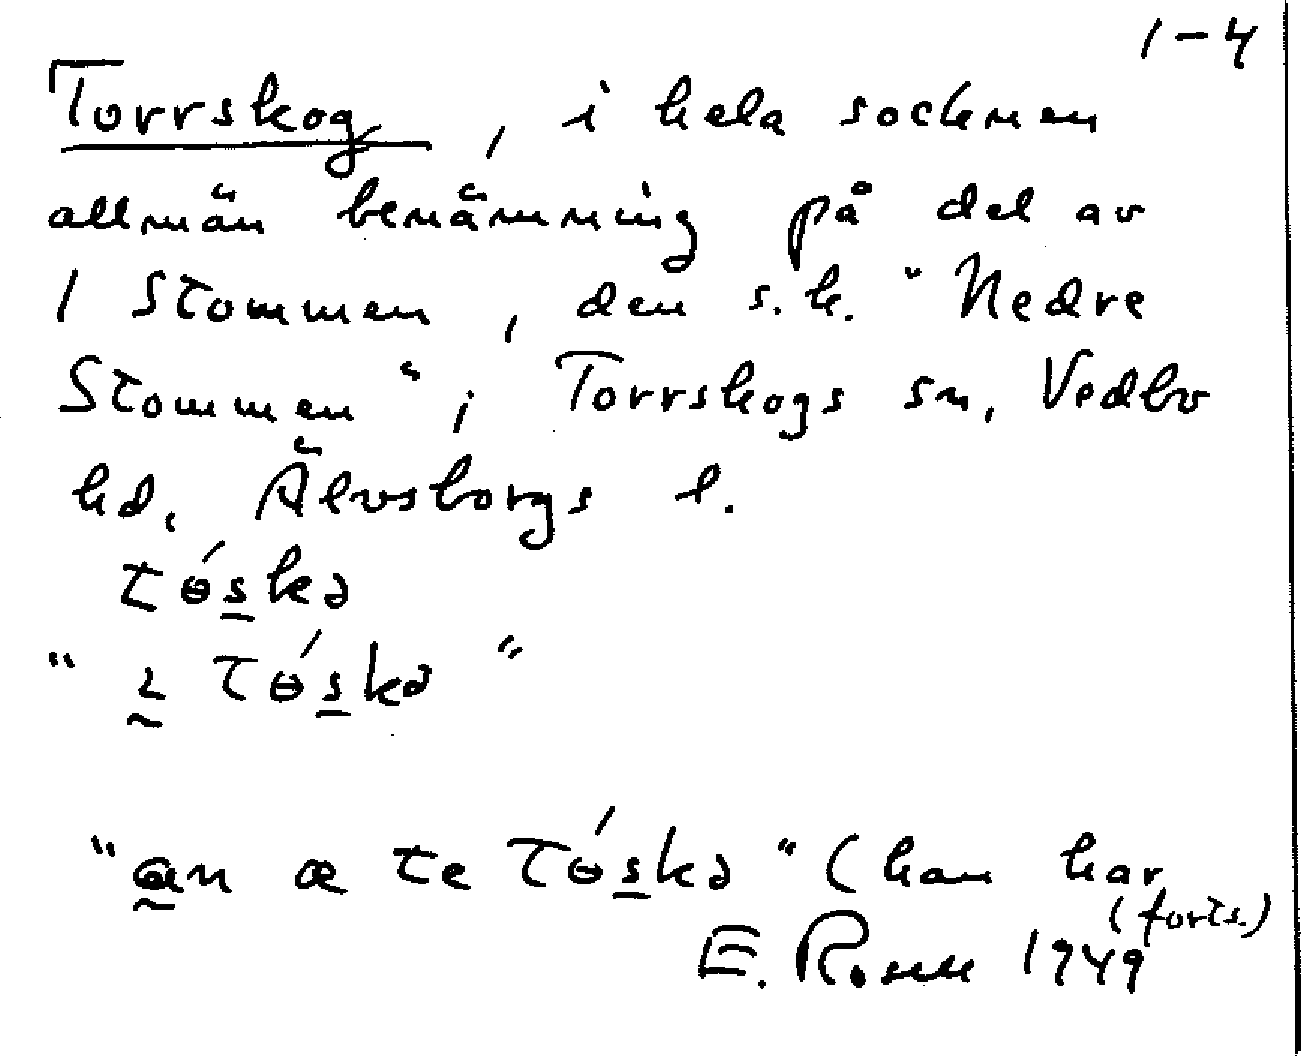 1-4
Torrskog, i hela socknen
allmän benämning på del av
1 Stommen, den s.k. "Nedre
Stommen" i Torrskogs sn, Vedbo
hd, Älvsborgs l.
tɵ́skə
"ɩ Tɵ́skə"
"an æ te Tɵ́skə" (han har
(forts.)
E. Rosell 1949